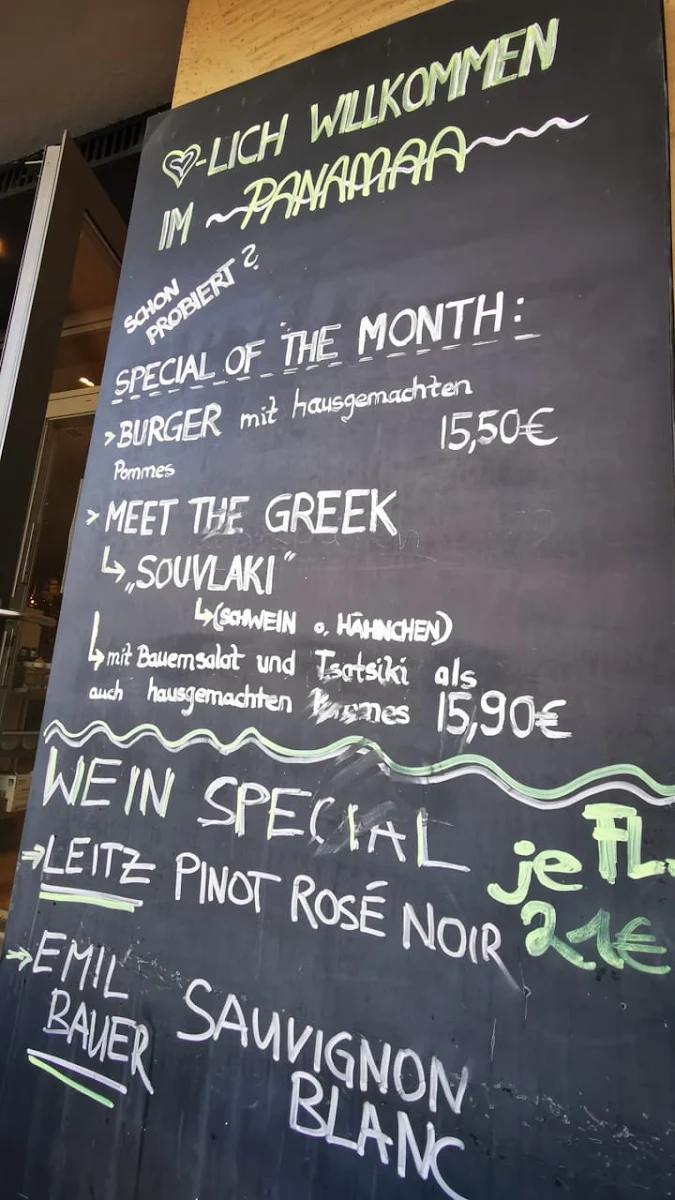 ♡-LICH WILLKOMMEN
IM ~PANAMAA~
SCHON
PROBIERT?
SPECIAL OF THE MONTH:
>BURGER mit hausgemachten
15,50€
Pommes
> MEET THE GREEK
↳ „SOUVLAKI“
↳(SCHWEIN o. HÄHNCHEN)
↳mit Bauernsalat und Tsatsiki als
auch hausgemachten Pommes 15,90€
WEIN SPECIAL
je FL.
⇒LEITZ PINOT ROSÉ NOIR
21€
→EMIL
BAUER
SAUVIGNON
BLANC